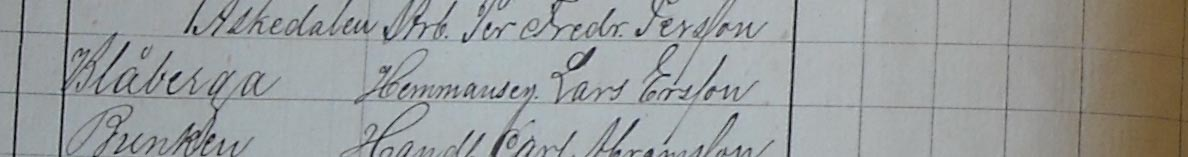 Askedalen Arb. Per Fredr. Persson
Blåberga Hemmanseg. Lars Ersson
Bunken Handl. Carl Abramsson